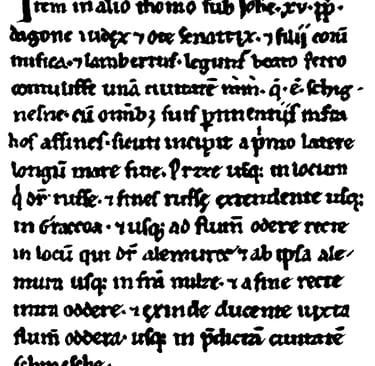 Item in alio thomo sub Johe .xv. pp.
dagone iudex ⁊ ote senatrix. ⁊ filij eorū
misica. ⁊ lambertus. legunt beato petro
contulisse unā ciuitatē in int̄. q̄. ē. schig-
nesne. cū omib; suis ꝑtinentijs infra
hos affines. sicuti incipit a pͥmo latere
longū mare fine. Pruzze usq; in locum
q̇ dr̄ russe. ⁊ fines russe extendente usq;
in Craccoa. ⁊ usq; ad flum̄ odere recte
in locū qui dr̄ alemure ⁊ ab ipsa ale-
mura usq; in t̄rā milze. ⁊ a fine recte
intra oddere. ⁊ exinde ducente iuxta
flum̄ oddera. usq; in p̄dictā ciuitatē
schinesche.